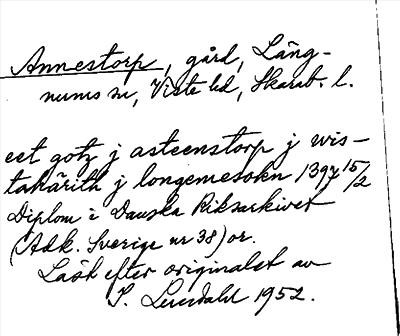 Annestorp, gård, Lång-
nums sn, Viste hd, Skarab. l.
eet gotz j asteenstorp j wis-
tahärith j longemesokn 1397 15/2
Diplom i Danska Riksarkivet
(Adk. Sverige nr 38) or.
Läst efter originalet av
S. 1952.